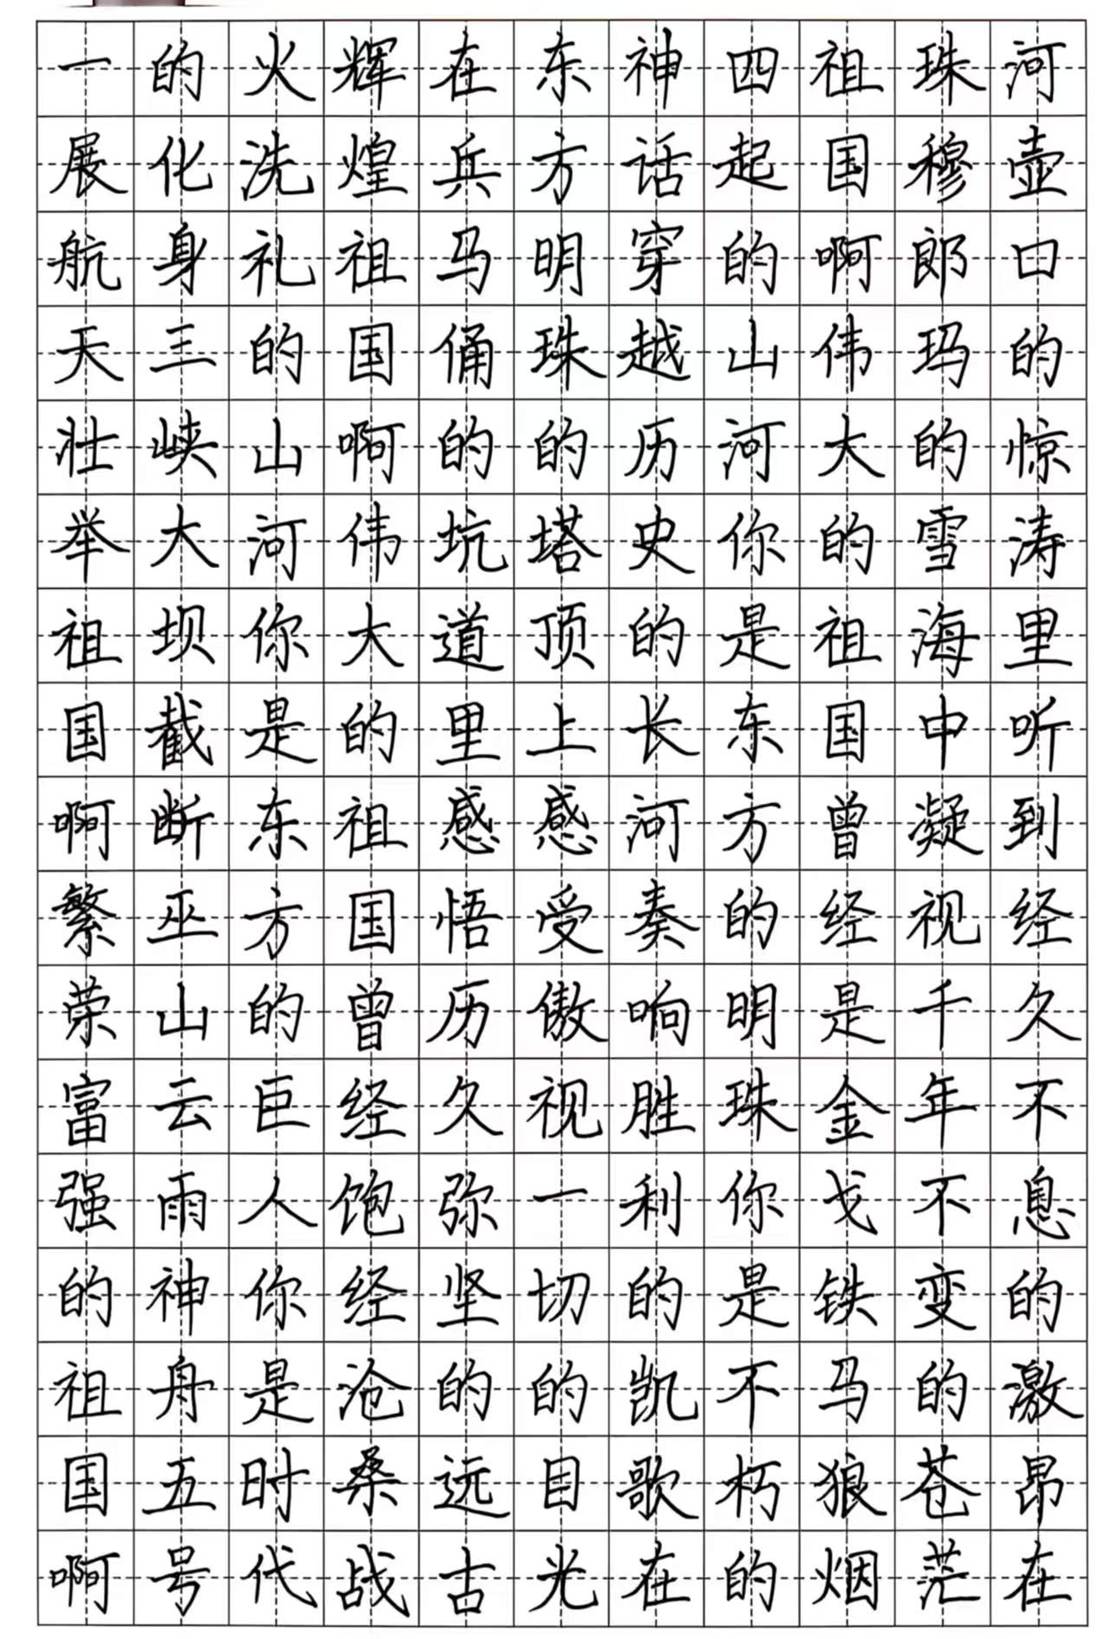 河壶口的惊涛里听到经久不息的激昂在
珠穆郎玛的雪海中凝视千年不变的苍茫
祖国啊伟大的祖国曾经是金戈铁马狼烟
四起的山河你是东方的明珠你是不朽的
神话穿越历史的长河奏响胜利的凯歌在
东方明珠的塔顶上感受傲视一切的目光
在兵马俑的坑道里感悟历久弥坚的远古
辉煌祖国啊伟大的祖国曾经饱经沧桑战
火洗礼的山河你是东方的巨人你是时代
的化身三峡大坝截断巫山云雨神舟五号
一展航天壮举祖国啊繁荣富强的祖国啊